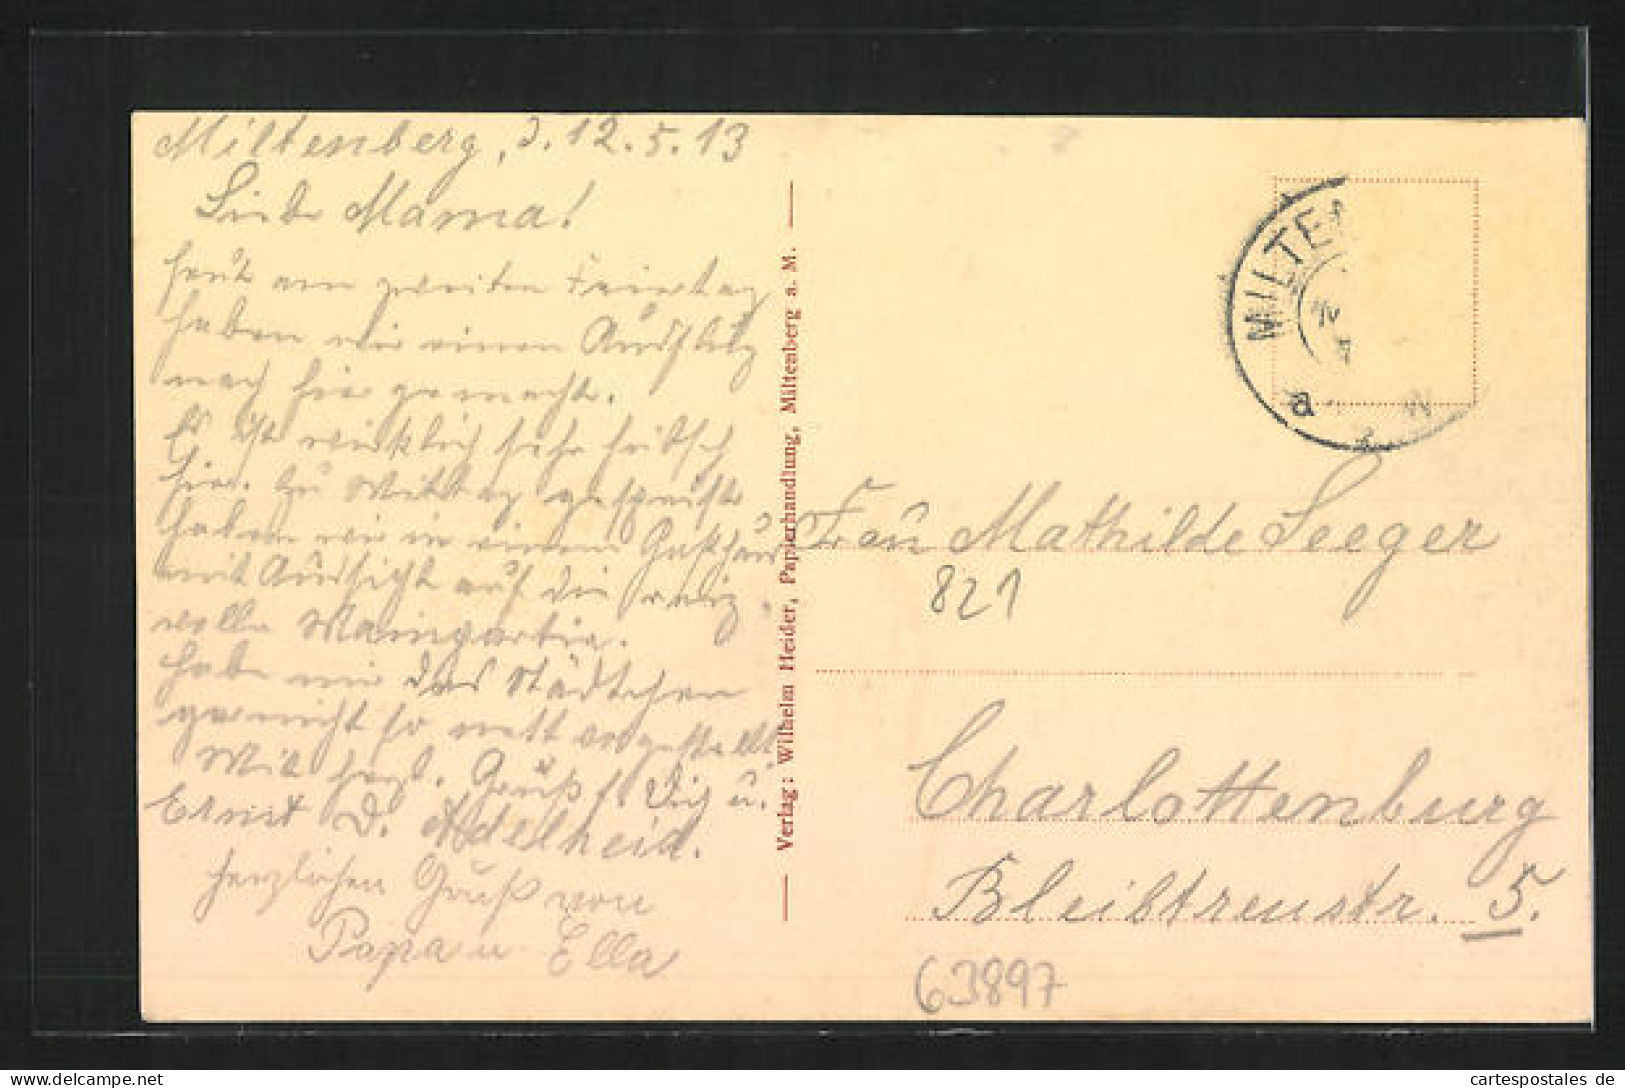 Miltenberg, d. 12.5.13
Liebe Mama!
heute am zweiten Feiertag
haben wir einen Ausflug
nach hier gemacht.
Es ist wirklich sehr hübsch
hier. Zu Mittag gespeist
haben wir in einem Gasthaus
mit Aussicht auf die reiz-
volle Mainpartie.
Habe mir das Städtchen
garnicht so nett vorgestellt.
Mit herzl. Gruß f. Dich u.
Ernst D. Adelheid.
Herzlichen Gruß von
Papa u. Ella
Verlag: Wilhelm Heider, Papierhandlung, Miltenberg a. M.
MILTEN
a
M
Frau Mathilde Seeger
821
Charlottenburg
Bleibtreustr. 5.
63897
cartespostales de